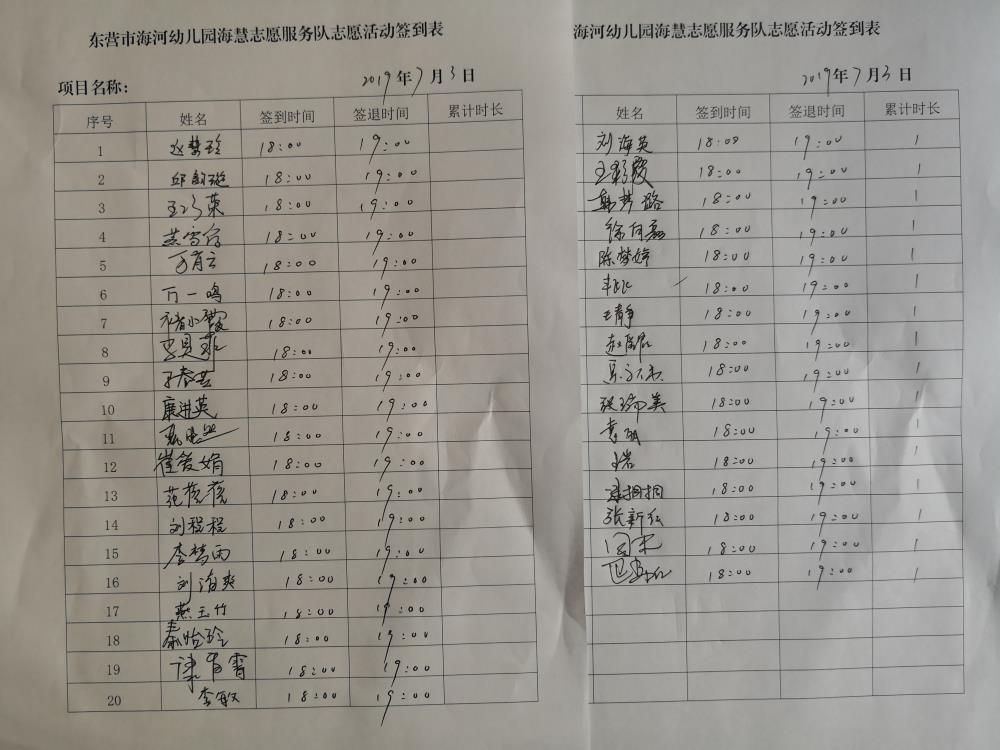 东营市海河幼儿园海慧志愿服务队志愿活动签到表
项目名称：
2019年7月3日
序号 姓名 签到时间 签退时间 累计时长
1 赵梦玲 18:00 19:00
2 邱 18:00 19:00
3 王巧荣 18:00 19:00
4 燕雪 18:00 19:00
5 万育 18:00 19:00
6 万一鸣 18:00 19:00
7 褚小霞 18:00 19:00
8 李昆 18:00 19:00
9 春芸 18:00 19:00
10 康进英 18:00 19:00
11 18:00 19:00
12 崔爱娟 18:00 19:00
13 范蓓蓓 18:00 19:00
14 刘程程 18:00 19:00
15 李梦雨 18:00 19:00
16 刘海爽 18:00 19:00
17 燕玉竹 18:00 19:00
18 秦怡玲 18:00 19:00
19 谭育霄 18:00 19:00
20 李敏 18:00 19:00
海河幼儿园海慧志愿服务队志愿活动签到表
2019年7月3日
姓名 签到时间 签退时间 累计时长
刘海英 18:00 19:00 1
王彩霞 18:00 19:00 1
韩梦璐 18:00 19:00 1
徐向磊 18:00 19:00 1
陈梦婷 18:00 19:00 1
18:00 19:00 1
王静 18:00 19:00 1
赵 18:00 19:00 1
18:00 19:00 1
张瑞美 18:00 19:00 1
袁 18:00 19:00 1
18:00 19:00 1
逯拥拥 18:00 19:00 1
张新红 18:00 19:00 1
18:00 19:00 1
18:00 19:00 1